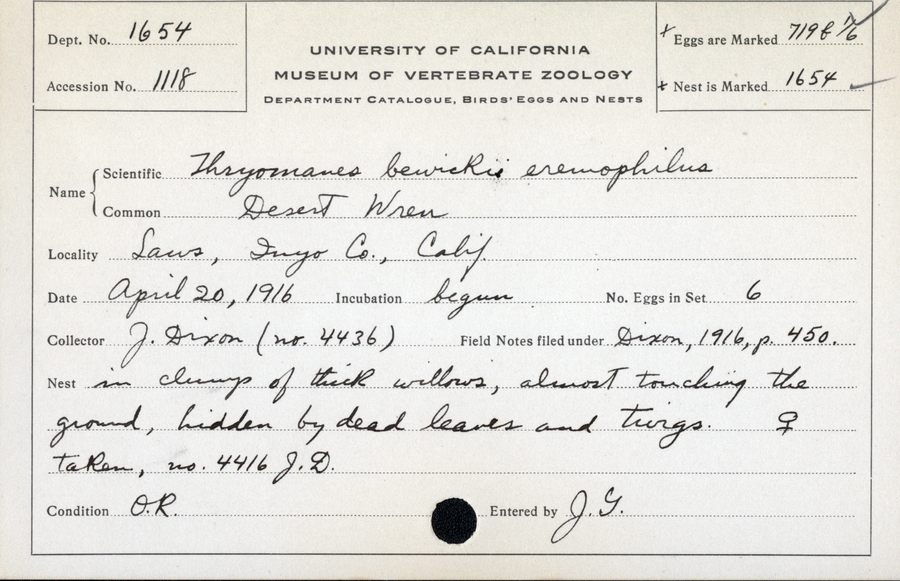 Dept. No. 1654
Accession No. 1118
UNIVERSITY OF CALIFORNIA
MUSEUM OF VERTEBRATE ZOOLOGY
DEPARTMENT CATALOGUE, BIRDS' EGGS AND NESTS
+ Eggs are Marked 719 & 1/6
+ Nest is Marked 1654
Name Scientific Thryomanes bewickii eremophilus
Common Desert Wren
Locality Laws, Inyo Co., Calif
Date April 20, 1916 Incubation begun No. Eggs in Set 6
Collector J. Dixon (no. 4436) Field Notes filed under Dixon, 1916, p. 450.
Nest in clump of thick willows, almost touching the
ground, hidden by dead leaves and twigs. ♀
taken, no. 4416 J.D.
Condition O.K. Entered by J.G.